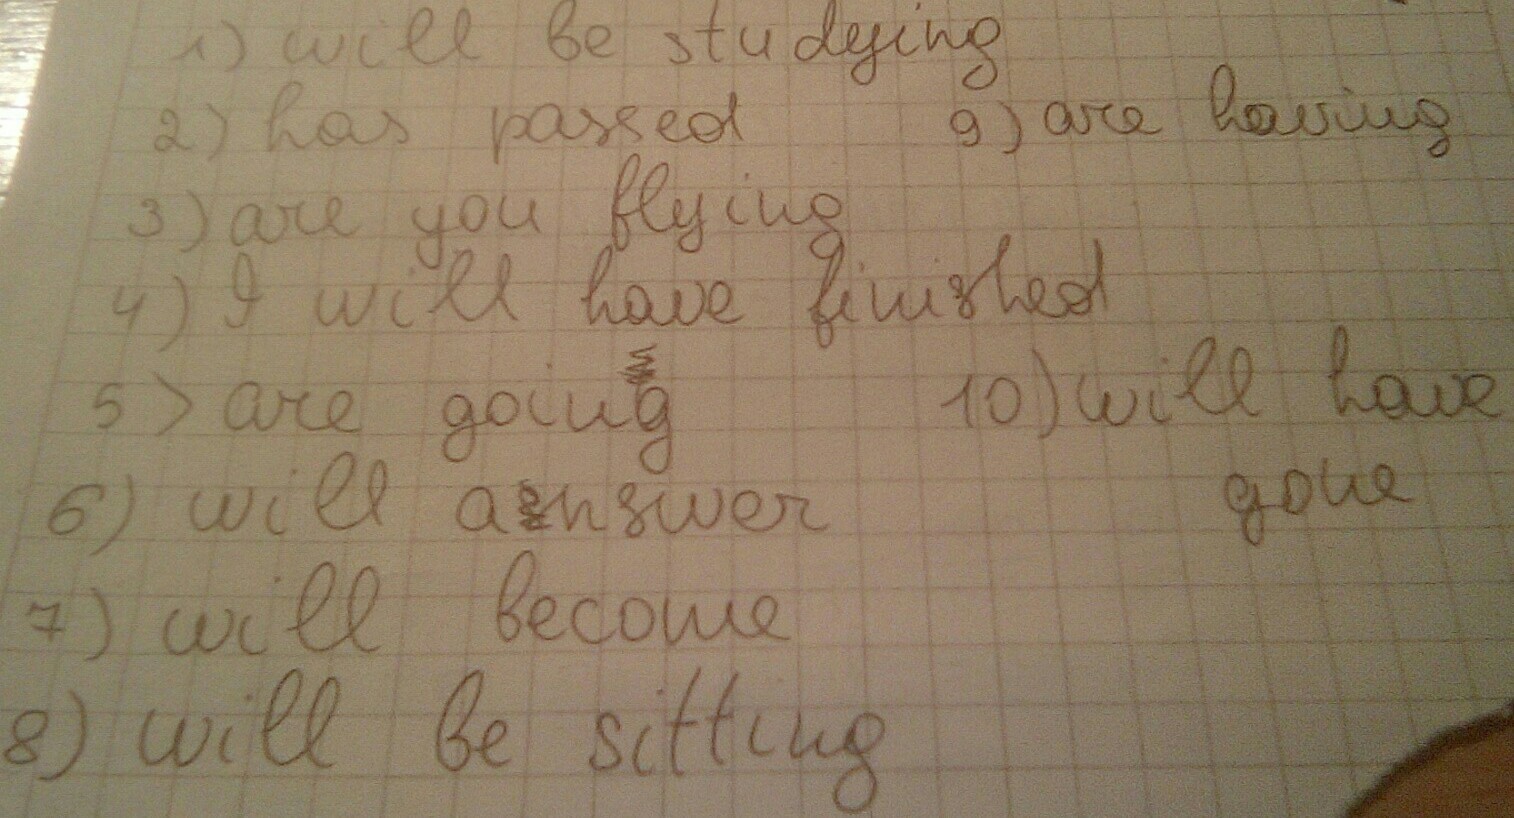 1) will be studying
2) has passed
9) are having
3) are you flying
4) I will have finished
5) are going
10) will have
gone
6) will answer
7) will become
8) will be sitting